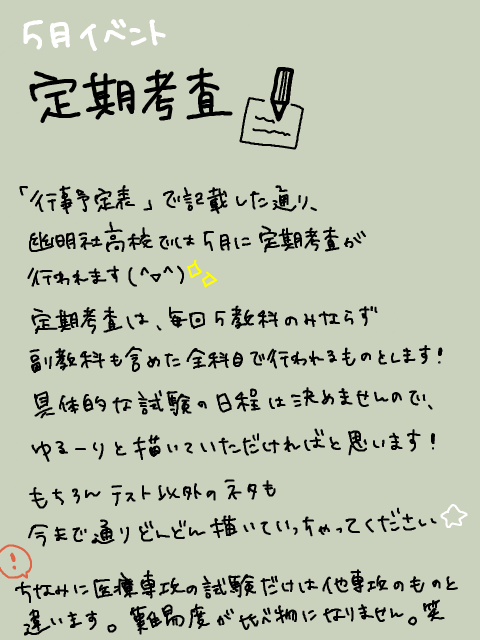 5月イベント
定期考査
「行事予定表」で記載した通り、
幽明社高校では5月に定期考査が
行われます(^▽^)
定期考査は、毎回5教科のみならず
副教科も含めた全科目で行われるものとします!
具体的な試験の日程は決めませんので、
ゆるーりと描いていただければと思います!
もちろんテスト以外のネタも
今まで通りどんどん描いていっちゃってください☆
!
ちなみに医療専攻の試験だけは他専攻のものと
違います。難易度が比べ物になりません。笑